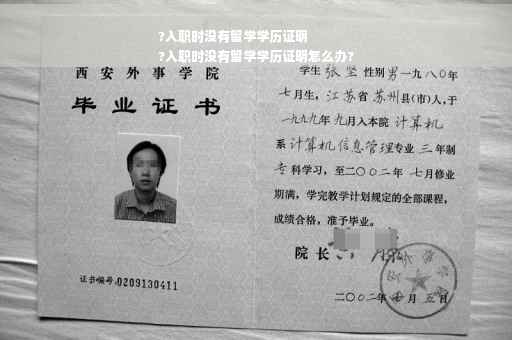 ?入职时没有留学学历证明
?入职时没有留学学历证明怎么办?
西安外事学院
毕业证书
证书编号:0209130411
学生 张坚 性别 男 一九八〇年
七月生, 江苏省 苏州县(市)人,于
一九九九年 九月入本院 计算机
系 计算机信息管理专业 三 年制
专科学习,至二〇〇二年 七月修业
期满,学完教学计划规定的全部课程,
成绩合格,准予毕业。
院长
二〇〇二年 月 五 日